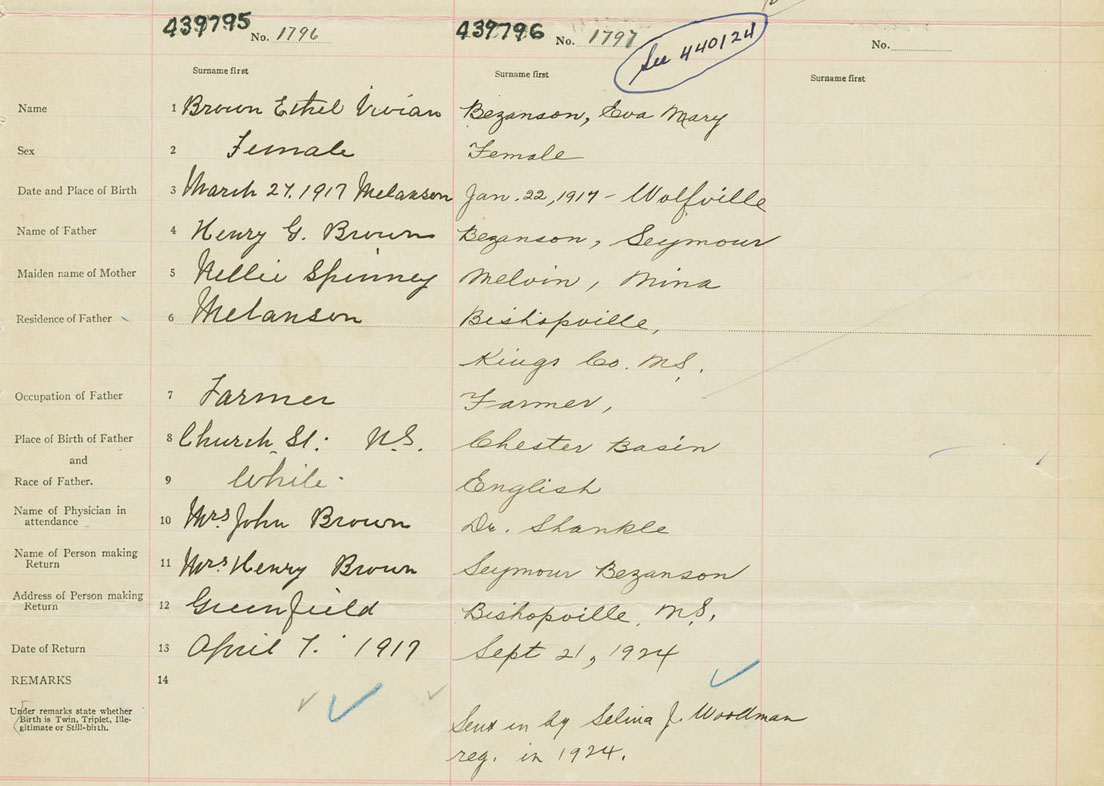 439795 No. 1796 439796 No. 1797 See 440124 No.
Surname first Surname first Surname first
Name 1 Brown Ethel Vivian Bezanson, Eva Mary
Sex 2 Female Female
Date and Place of Birth 3 March 27, 1917 Melanson Jan. 22, 1917 - Wolfville
Name of Father 4 Henry G. Brown Bezanson, Seymour
Maiden name of Mother 5 Nellie Spinney Melvin, Mina
Residence of Father 6 Melanson Bishopville,
Kings Co. N.S.
Occupation of Father 7 Farmer Farmer,
Place of Birth of Father 8 Church St. N.S. Chester Basin
and
Race of Father. 9 White. English
Name of Physician in
attendance 10 Mrs John Brown Dr. Shankle
Name of Person making
Return 11 Mrs Henry Brown Seymour Bezanson
Address of Person making
Return 12 Greenfield Bishopville, N.S.
Date of Return 13 April 7. 1917 Sept 21, 1924
REMARKS 14
Under remarks state whether
Birth is Twin, Triplet, Ille-
gitimate or Still-birth.
Sent in by Selina J. Woodman
reg. in 1924.